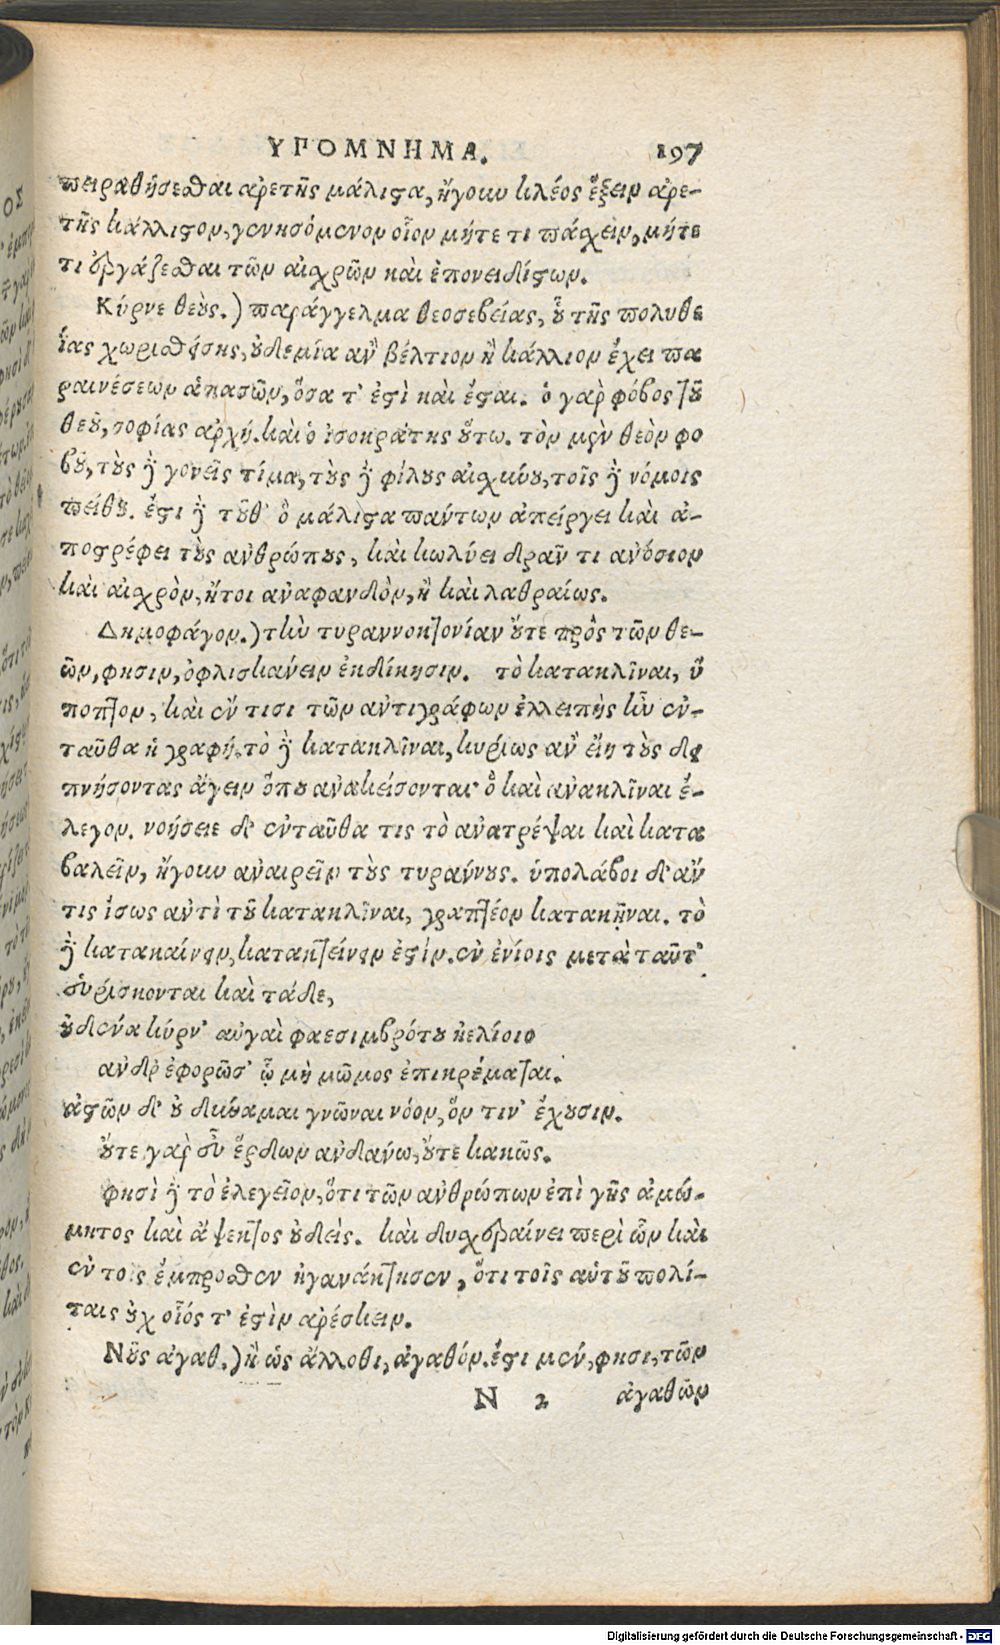 ΥΠΟΜΝΗΜΑ. 197
πειραθήσεσθαι ἀρετῆς μάλιστα, ἤγουν κλέος ἕξειν ἀρε-
τῆς κάλλιστον, γενησόμενον οἷον μήτε τι πάσχειν, μήτε
τι ἐργάζεσθαι τῶν αἰσχρῶν καὶ ἐπονειδίστων.
Κύρνε θεοὺς.) παράγγελμα θεοσεβείας, οὗ τῆς πολυθε
ΐας χωρισθείσης, οὐδεμία ἂν βέλτιον ἢ κάλλιον ἔχει πα
ραινέσεων ἁπασῶν, ὅσα τ' ἐστὶ καὶ ἔσται. ὁ γὰρ φόβος τοῦ
θεοῦ, σοφίας ἀρχή. καὶ ὁ ἰσοκράτης οὕτω. τὸν μὲν θεὸν φο
βοῦ, τοὺς δὲ γονεῖς τίμα, τοὺς δὲ φίλους αἰσχύνου, τοῖς δὲ νόμοις
πείθου. ἔστι δὲ τοῦθ' ὃ μάλιστα πάντων ἀπείργει καὶ ἀ-
ποστρέφει τοὺς ἀνθρώπους, καὶ κωλύει δρᾶν τι ἀνόσιον
καὶ αἰσχρὸν, ἤτοι ἀναφανδὸν, ἢ καὶ λαθραίως.
Δημοφάγον.) τὴν τυραννοκτονίαν οὔτε πρὸς τῶν θε-
ῶν, φησιν, ὀφλισκάνειν ἐκδίκησιν. τὸ κατακλῖναι, ὕ
ποπτον, καὶ ἔν τισι τῶν ἀντιγράφων ἐλλειπὴς ἦν ἐν-
ταῦθα ἡ γραφή. τὸ δὲ κατακλῖναι, κυρίως ἂν εἴη τοὺς δει
πνήσοντας ἄγειν ὅπου ἀνακείσονται· ὃ καὶ ἀνακλῖναι ἔ-
λεγον. νοήσειε δ' ἐνταῦθα τις τὸ ἀνατρέψαι καὶ κατα
βαλεῖν, ἤγουν ἀναιρεῖν τοὺς τυράννους. ὑπολάβοι δ' ἄν
τις ἴσως ἀντὶ τοῦ κατακλῖναι, γραπτέον κατακῆναι. τὸ
δὲ κατακαίνειν, κατακτείνειν ἐστίν. ἐν ἐνίοις μετὰ ταῦτ'
εὑρίσκονται καὶ τάδε,
οὐδένα κύρν' αὐγαὶ φαεσιμβρότου ἠελίοιο
ἄνδρ' ἐφορῶσ' ᾧ μὴ μῶμος ἐπικρέμαται.
ἀστῶν δ' οὐ δύναμαι γνῶναι νόον, ὅν τιν' ἔχουσιν.
οὔτε γὰρ εὖ ἕρδων ἁνδάνω, οὔτε κακῶς.
φησὶ δὲ τὸ ἐλεγεῖον, ὅτι τῶν ἀνθρώπων ἐπὶ γῆς ἀμώ-
μητος καὶ ἄψεκτος οὐδείς. καὶ δυσχεραίνει περὶ ὧν καὶ
ἐν τοῖς ἔμπροσθεν ἠγανάκτησεν, ὅτι τοῖς αὑτοῦ πολί-
ταις οὐχ οἷός τ' ἐστὶν ἀρέσκειν.
Νοῦς ἀγαθ.) ἢ ὡς ἄλλοθι, ἀγαθόν. ἔστι μέν, φησι, τῶν
N 2 ἀγαθῶν
Digitalisierung gefördert durch die Deutsche Forschungsgemeinschaft - DFG